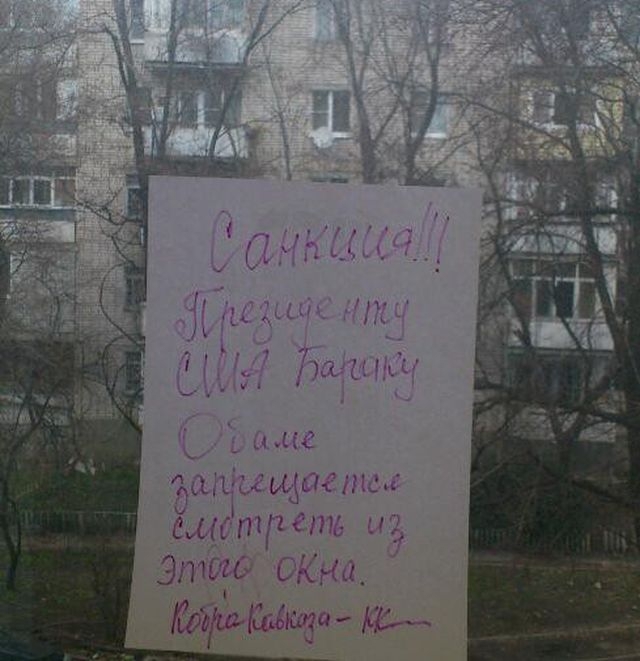 Санкция!!!
Президенту
США Бараку
Обаме
запрещается
смотреть из
этого окна.
Кобра Кавказа – КК